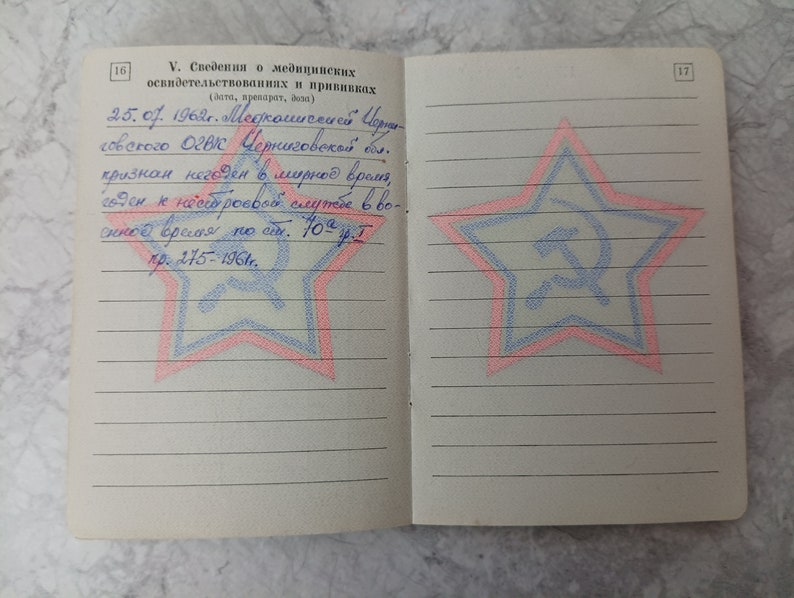 16
V. Сведения о медицинских
освидетельствованиях и прививках
(дата, препарат, доза)
25.07. 1962г. Медкомиссией Черни-
говского ОГВК Черниговской обл.
признан негоден в мирное время,
годен к нестроевой службе в во-
енное время по ст. 70а гр. I
пр. 275-1961г.
17